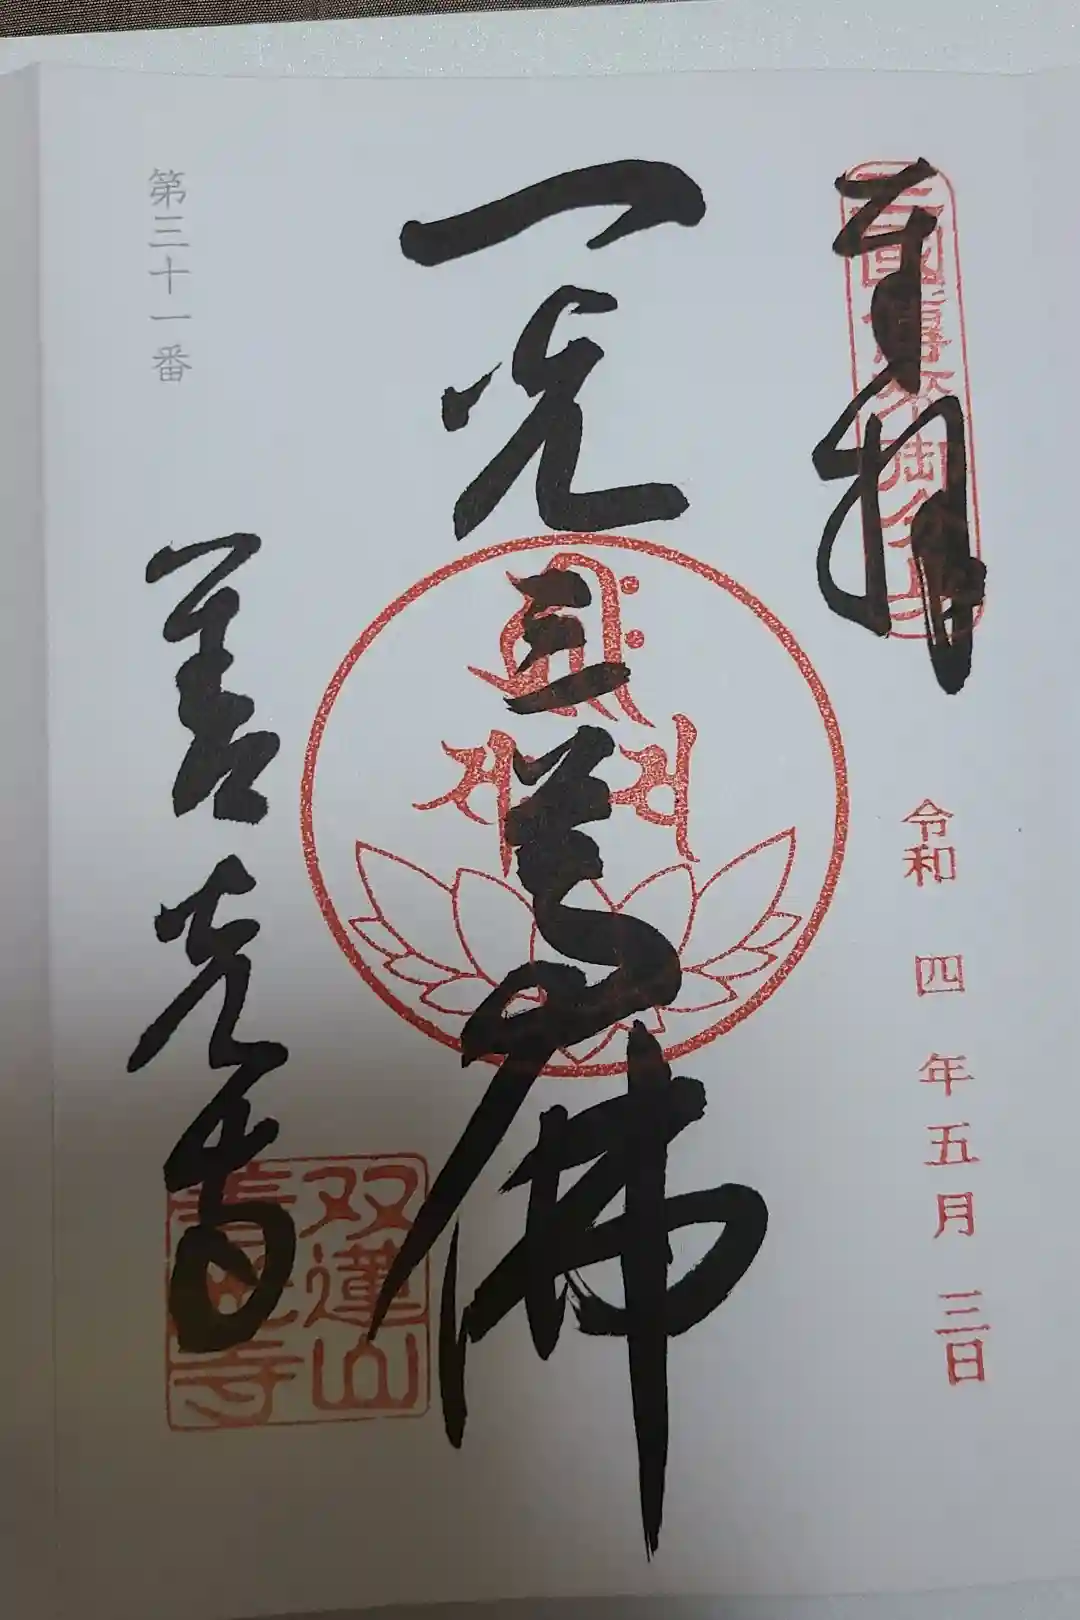 奉拝
三國傳來御分身
令和四年五月三日
一光三尊佛
第三十一番
善光寺
双蓮山
善光寺